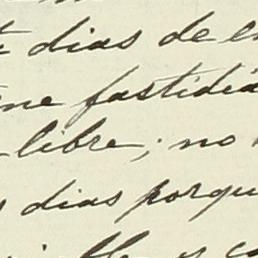 dias de
fastidia
libre; no
dias porqu